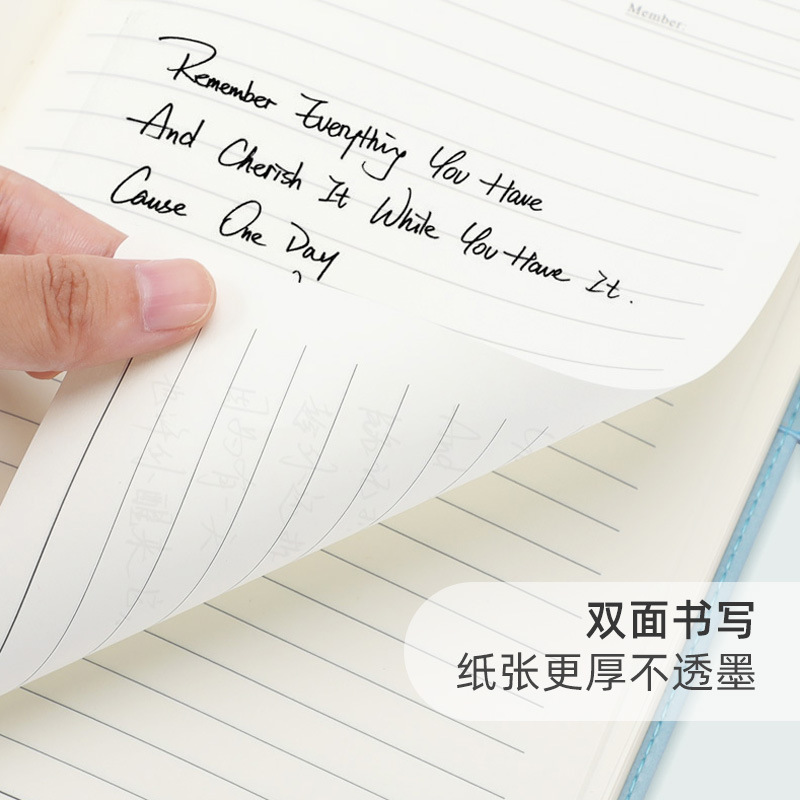 Member:
Remember Everything You Have
And Cherish It While You Have It.
Cause One Day
双面书写
纸张更厚不透墨